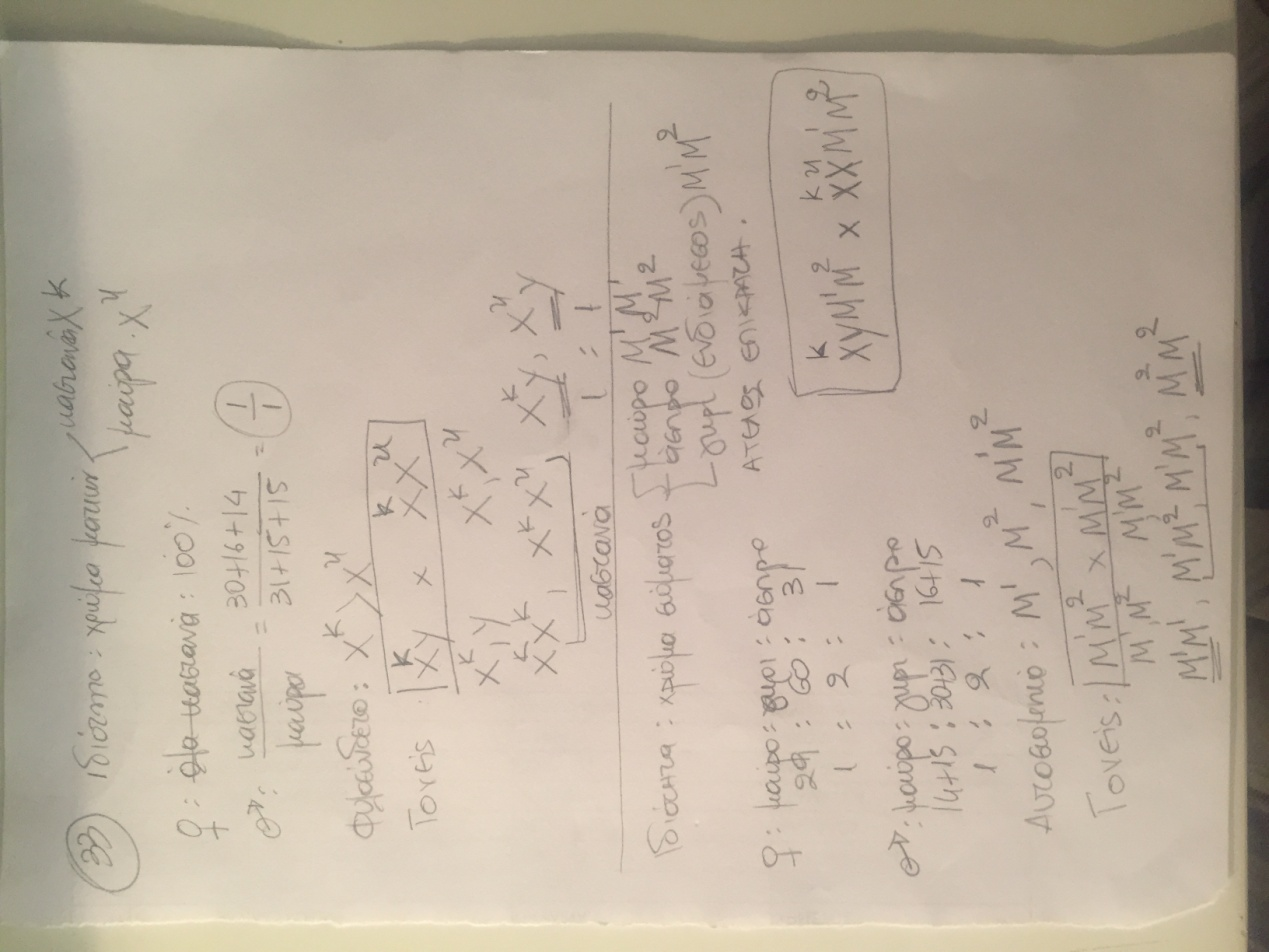 33 Ιδιότητα: χρώμα ματιών καστανά X^K
μαύρα. X^κ
♀: όλα καστανά: 100%
♂: καστανά/μαύρα = 30+16+14/31+15+15 = 1/1
Φυλοσύνδετο: X^K > X^κ
Γονείς: X^KY x X^KX^κ
X^K, Y X^K, X^κ
X^KX^K, X^KX^κ, X^KY, X^κY
καστανά 1 : 1
Ιδιότητα: χρώμα σώματος μαύρο M^1M^1
άσπρο M^2M^2
γκρι (ενδιάμεσος) M^1M^2
ατελώς επικρατή.
♀: μαύρο: γκρι: άσπρο
29 : 60 : 31
1 : 2 : 1
X^KYM^1M^2 x X^KX^κM^1M^2
♂: μαύρο: γκρι: άσπρο
14+15 : 30+31 : 16+15
1 : 2 : 1
Αυτοσωμικό: M^1, M^2, M^1M^2
Γονείς: M^1M^2 x M^1M^2
M^1, M^2 M^1, M^2
M^1M^1, M^1M^2, M^1M^2, M^2M^2